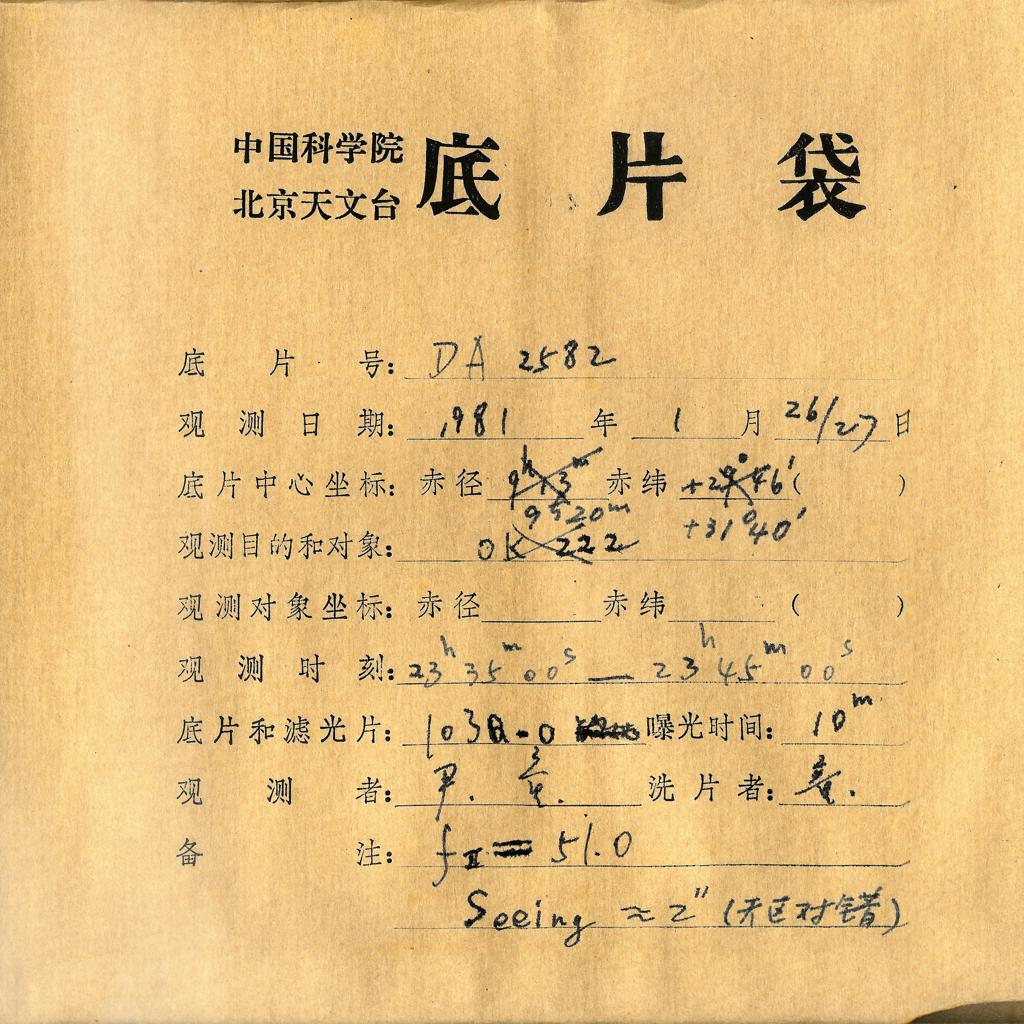 中国科学院
北京天文台 底片袋
底片号: DA 2582
观测日期: 1981 年 1 月 26/27 日
底片中心坐标: 赤径 9h13m 赤纬 +29°46′ ( )
9h20m +31°40′
观测目的和对象: OK 222
观测对象坐标: 赤径 赤纬 ( )
观测时刻: 23h 35m 00s — 23h 45m 00s
底片和滤光片: 103a-O 曝光时间: 10m
观测者: 尹. 洗片者:
备注: fII = 51.0
Seeing ≈ 2″ (天区对错)